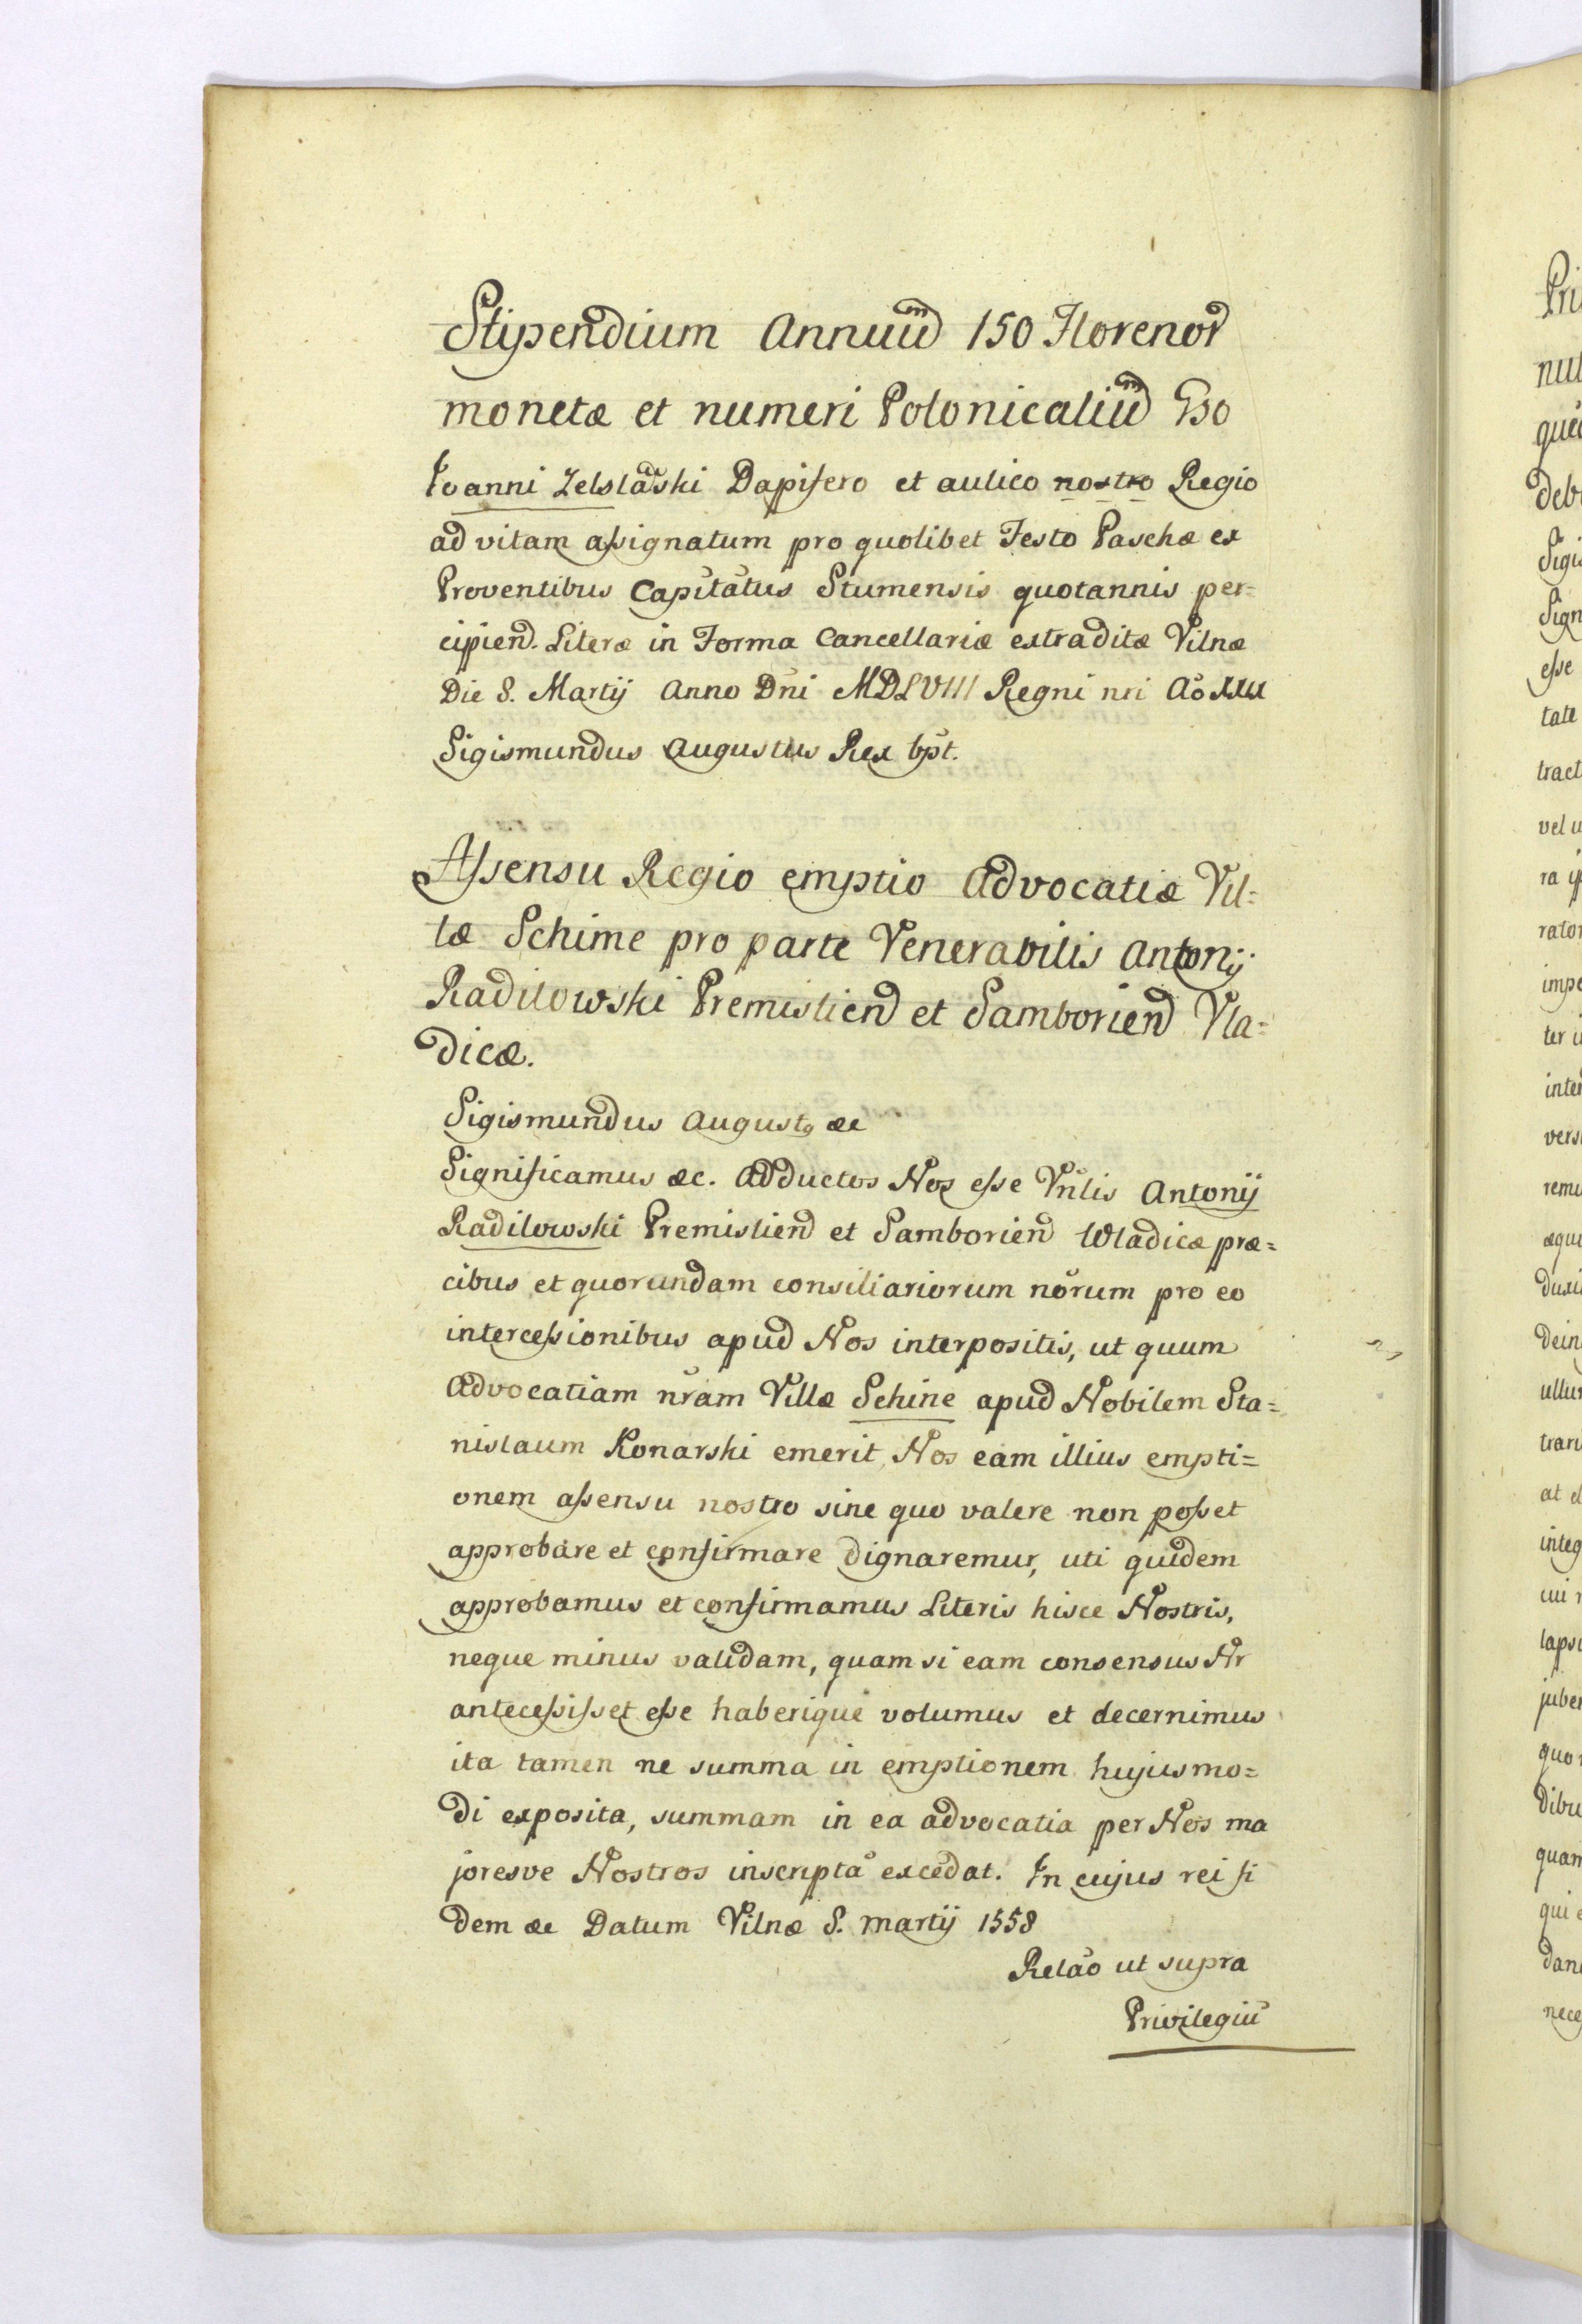 Stipendium Annuum 150 Florenor
monetæ et numeri Polonicalium Gso
Ioanni Zelslawski Dapifero et aulico nostro Regio
ad vitam assignatum pro quolibet Festo Paschæ ex
Proventibus Capitatus Stumensis quotannis per=
cipiend. Literæ in Forma Cancellariæ extraditæ Vilnæ
Die 8. Martij Anno Dni MDLVIII Regni nri Ao
Sigismundus Augustus Rex
Assensu Regio emptio Advocatiæ Vil=
læ Schime pro parte Venerabilis Antonij
Radilowski Premislien et Samborien Vla=
dicæ.
Sigismundus August9 &c
Significamus &c. Adductos Nos esse Vnlis Antonij
Radilowski Premislien et Samborien Wladicæ præ=
cibus et quorundam consiliariorum norum pro eo
intercessionibus apud Nos interpositis, ut quum
Advocatiam nram Villæ Schine apud Nobilem Sta=
nislaum Konarski emerit, Nos eam illius empti=
onem assensu nostro sine quo valere non posset
approbare et confirmare dignaremur, uti quidem
approbamus et confirmamus Literis hisce Nostris,
neque minus validam, quam si eam consensus Nr
antecessisset esse haberique volumus et decernimus
ita tamen ne summa in emptionem hujusmo=
di exposita, summam in ea advocatia per Nos ma
joresve Nostros inscripta excedat. In cujus rei fi
dem &c Datum Vilnæ 8. martij 1558
Relao ut supra
Privilegiu